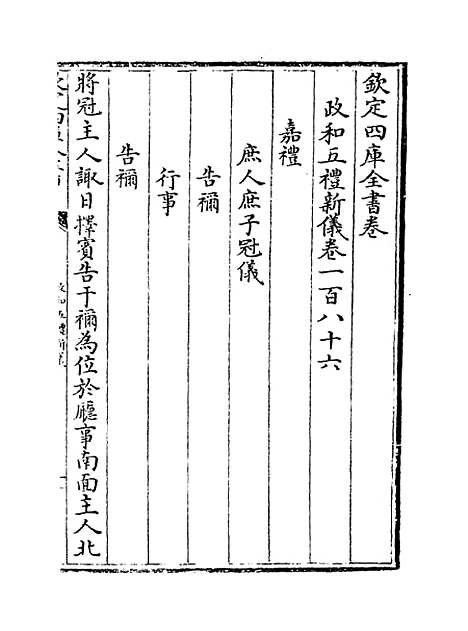 欽定四庫全書卷
政和五禮新儀卷一百八十六
嘉禮
庶人庶子冠儀
告禰
行事
告禰
將冠主人諏日擇賓告于禰為位於廳事南面主人北